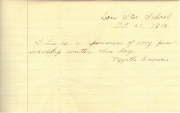 Lone Star School
Oct. 21, 18
This is a specimen of my pen
manship written this day.